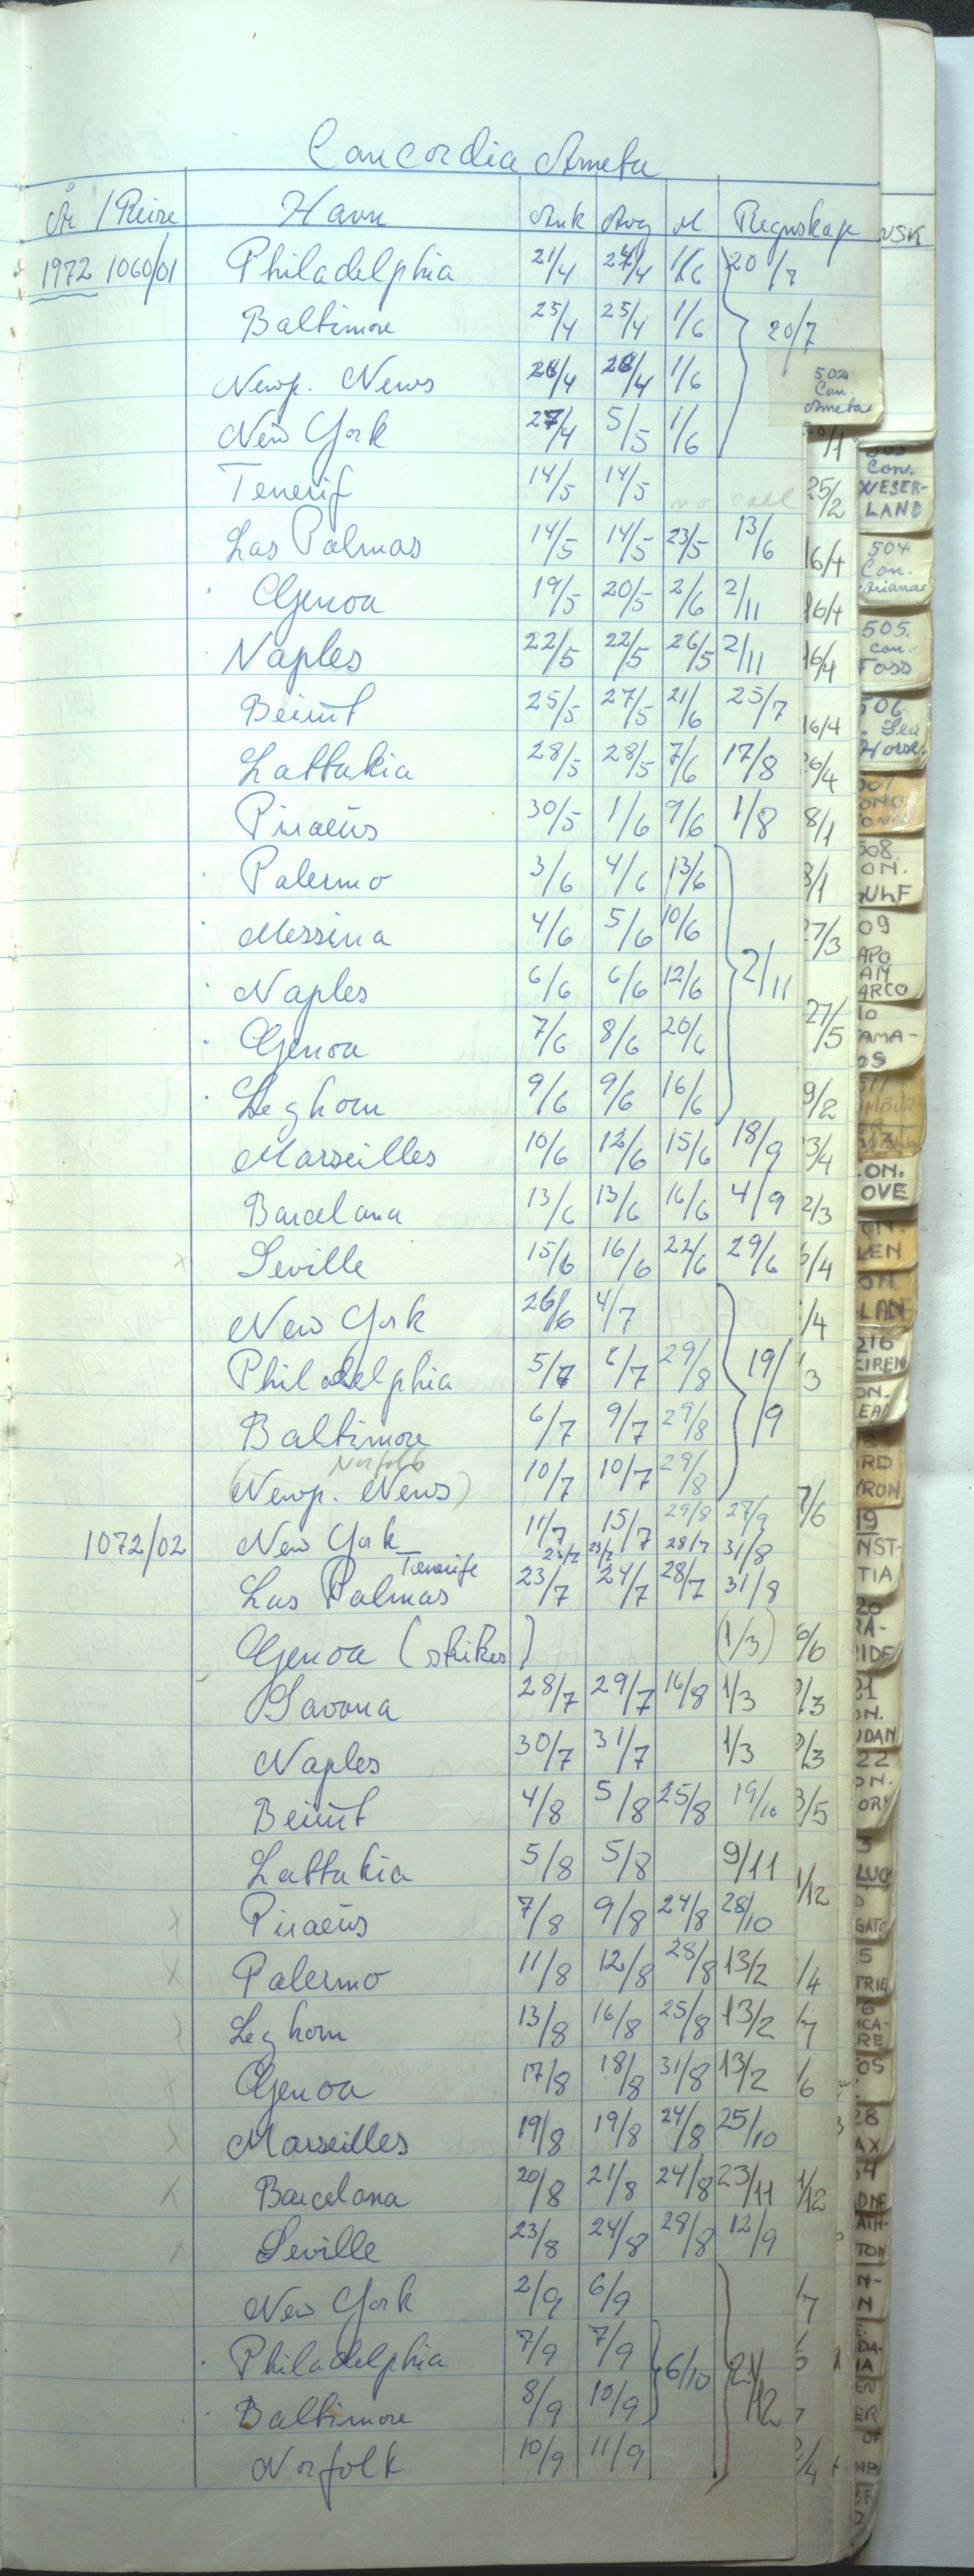 Concordia Ameta
År / Reise Havn Ank Avg M. Regnskap
1972 1060/01 Philadelphia 21/4 24/4 1/6 20/7
Baltimore 25/4 25/4 1/6 20/7
Newp. News 26/4 26/4 1/6
New York 27/4 5/5 1/6
Tenerif 14/5 14/5 no call
Las Palmas 14/5 14/5 23/5 13/6
Genoa 19/5 20/5 2/6 2/11
Naples 22/5 22/5 26/5 2/11
Beirut 25/5 27/5 21/6 25/7
Lattakia 28/5 28/5 7/6 17/8
Piraeus 30/5 1/6 9/6 1/8
Palermo 3/6 4/6 13/6
Messina 4/6 5/6 10/6
Naples 6/6 6/6 12/6 2/11
Genoa 7/6 8/6 20/6
Leghorn 9/6 9/6 16/6
Marseilles 10/6 12/6 15/6 18/9
Barcelona 13/6 13/6 16/6 4/9
Seville 15/6 16/6 22/6 29/6
New York 26/6 4/7
Philadelphia 5/7 6/7 29/8 19/9
Baltimore 6/7 9/7 29/8
Norfolk
(Newp. News) 10/7 10/7 29/8
1072/02 New York 11/7 15/7 29/8 27/9
Tenerife 23/7 23/7 28/7 31/8
Las Palmas 23/7 24/7 28/7 31/8
Genoa (strikes) (1/3)
Savona 28/7 29/7 16/8 1/3
Naples 30/7 31/7 1/3
Beirut 4/8 5/8 25/8 19/10
Lattakia 5/8 5/8 9/11
Piraeus 7/8 9/8 24/8 28/10
Palermo 11/8 12/8 28/8 13/2
Leghorn 13/8 16/8 25/8 13/2
Genoa 17/8 18/8 31/8 13/2
Marseilles 19/8 19/8 24/8 25/10
Barcelona 20/8 21/8 24/8 23/11
Seville 23/8 24/8 28/8 12/9
New York 2/9 6/9
Philadelphia 7/9 7/9 6/10 21/12
Baltimore 8/9 10/9
Norfolk 10/9 11/9
502
Con.
Ameta
Con.
WESER-
LAND
504
Con.
505.
Con.
Foss
506
Sea
Horse
25/2
16/4
16/4
16/4
16/4
26/4
8/1
8/1
27/3
27/5